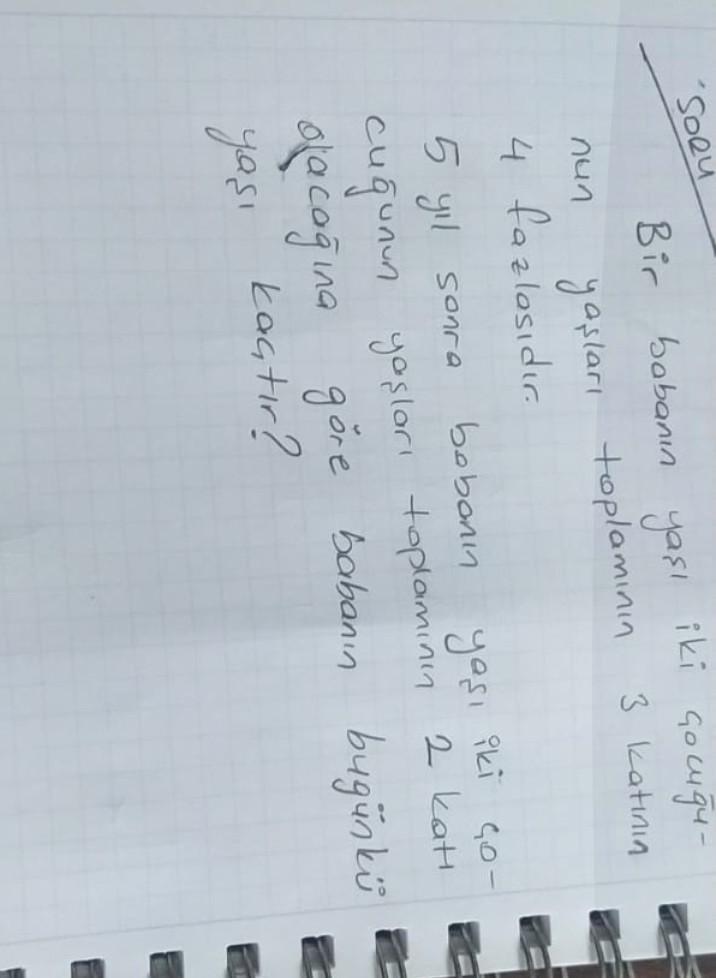 Soru
Bir babanın yaşı iki çocuğu-
nun yaşları toplamının 3 katının
4 fazlasıdır.
5 yıl sonra babanın yaşı iki ço-
cuğunun yaşları toplamının 2 katı
olacağına göre babanın bugünkü
yaşı kaçtır?